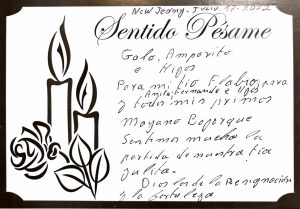 New Jersey - Julio. 17-2022
Sentido Pésame
Galo, Amparito
e Hijos
Para mi tio Flabio y para
Amita, Fernando e Hijos
y todos mis primos
Moyano Bojorque
Sentimos mucho la
partida de nuestra tia
Julita.
Dios les de la Resignación
y la fortaleza